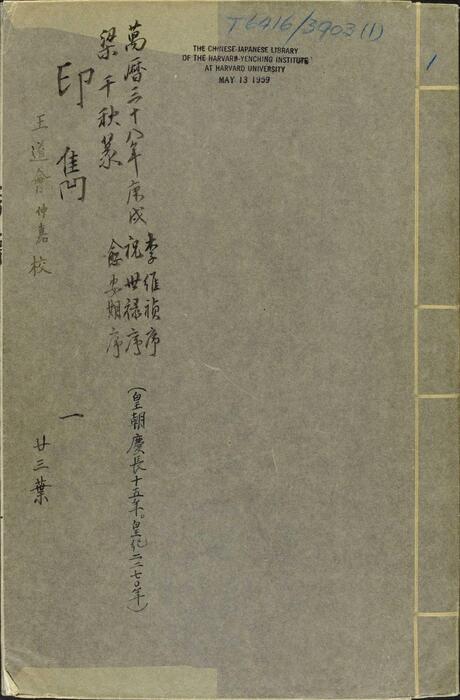 T6416/3903(1)
1
THE CHINESE-JAPANESE LIBRARY
OF THE HARVARD-YENCHING INSTITUTE
AT HARVARD UNIVERSITY
MAY 13 1959
萬曆三十八年庚戌
李維禎序
祝世禄序
俞安期序
(皇朝慶長十五年。皇紀二二七〇年)
梁千秋篆
印雋
一
王道會仲嘉校
廿三葉